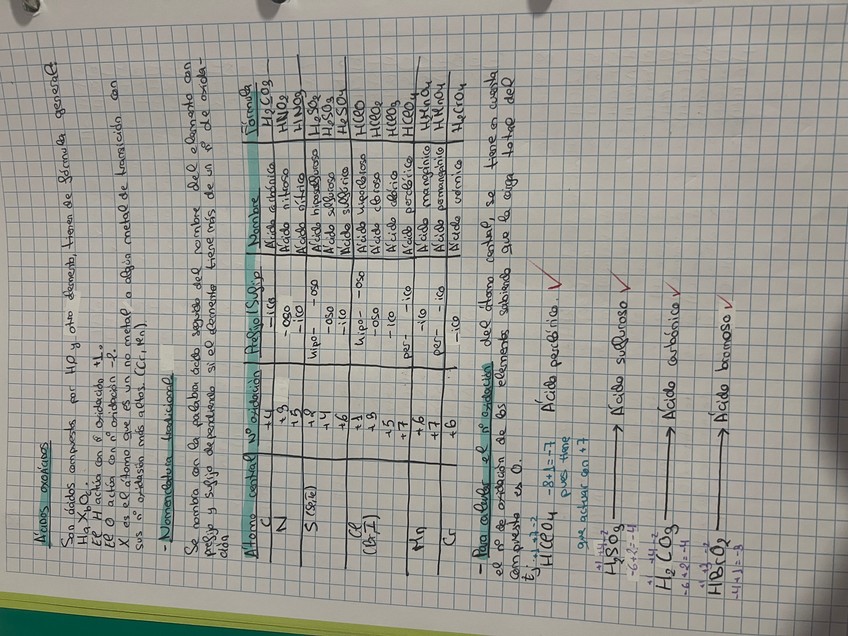 ÁCIDOS OXOÁCIDOS
Son ácidos compuestos por H,O y otro elemento, tienen de fórmula general:
HaXbOc.
El H actúa con nº oxidación +1.
El O actúa con nº oxidación -2.
X es el átomo que es un no metal o algún metal de transición con
sus nº oxidación más altos. (Cr, Mn)
- Nomenclatura tradicional
Se nombra con la palabra ácido seguido del nombre del elemento con
prefijo y sufijo dependiendo si el elemento tiene más de un nº de oxida-
ción
Átomo central | Nº oxidación | Prefijo/Sufijo | Nombre | Fórmula
C | +4 | -ico | Ácido carbónico | H2CO3
N | +3 | -oso | Ácido nitroso | HNO2
+5 | -ico | Ácido nítrico | HNO3
S (Se,Te) | +2 | hipo- -oso | Ácido hiposulfuroso | H2SO2
+4 | -oso | Ácido sulfuroso | H2SO3
+6 | -ico | Ácido sulfúrico | H2SO4
Cl (Br,I) | +1 | hipo- -oso | Ácido hipocloroso | HClO
+3 | -oso | Ácido cloroso | HClO2
+5 | -ico | Ácido clórico | HClO3
+7 | per- -ico | Ácido perclórico | HClO4
Mn | +6 | -ico | Ácido mangánico | H2MnO4
+7 | per- -ico | Ácido permangánico | HMnO4
Cr | +6 | -ico | Ácido crómico | H2CrO4
- Para calcular el nº oxidación del átomo central, se tiene en cuenta
el nº de oxidación de los elementos sabiendo que la carga total del
compuesto es 0.
Ej: +1 +7 -2
HClO4 -8+1=-7 Ácido perclórico. ✓
pues tiene
que actuar con +7
+1 +4 -2
H2SO3 → Ácido sulfuroso ✓
-6+2=-4
+1 +4 -2
H2CO3 → Ácido carbónico ✓
-6+2=-4
+1 +3 -2
HBrO2 → Ácido bromoso ✓
-4+1=-3